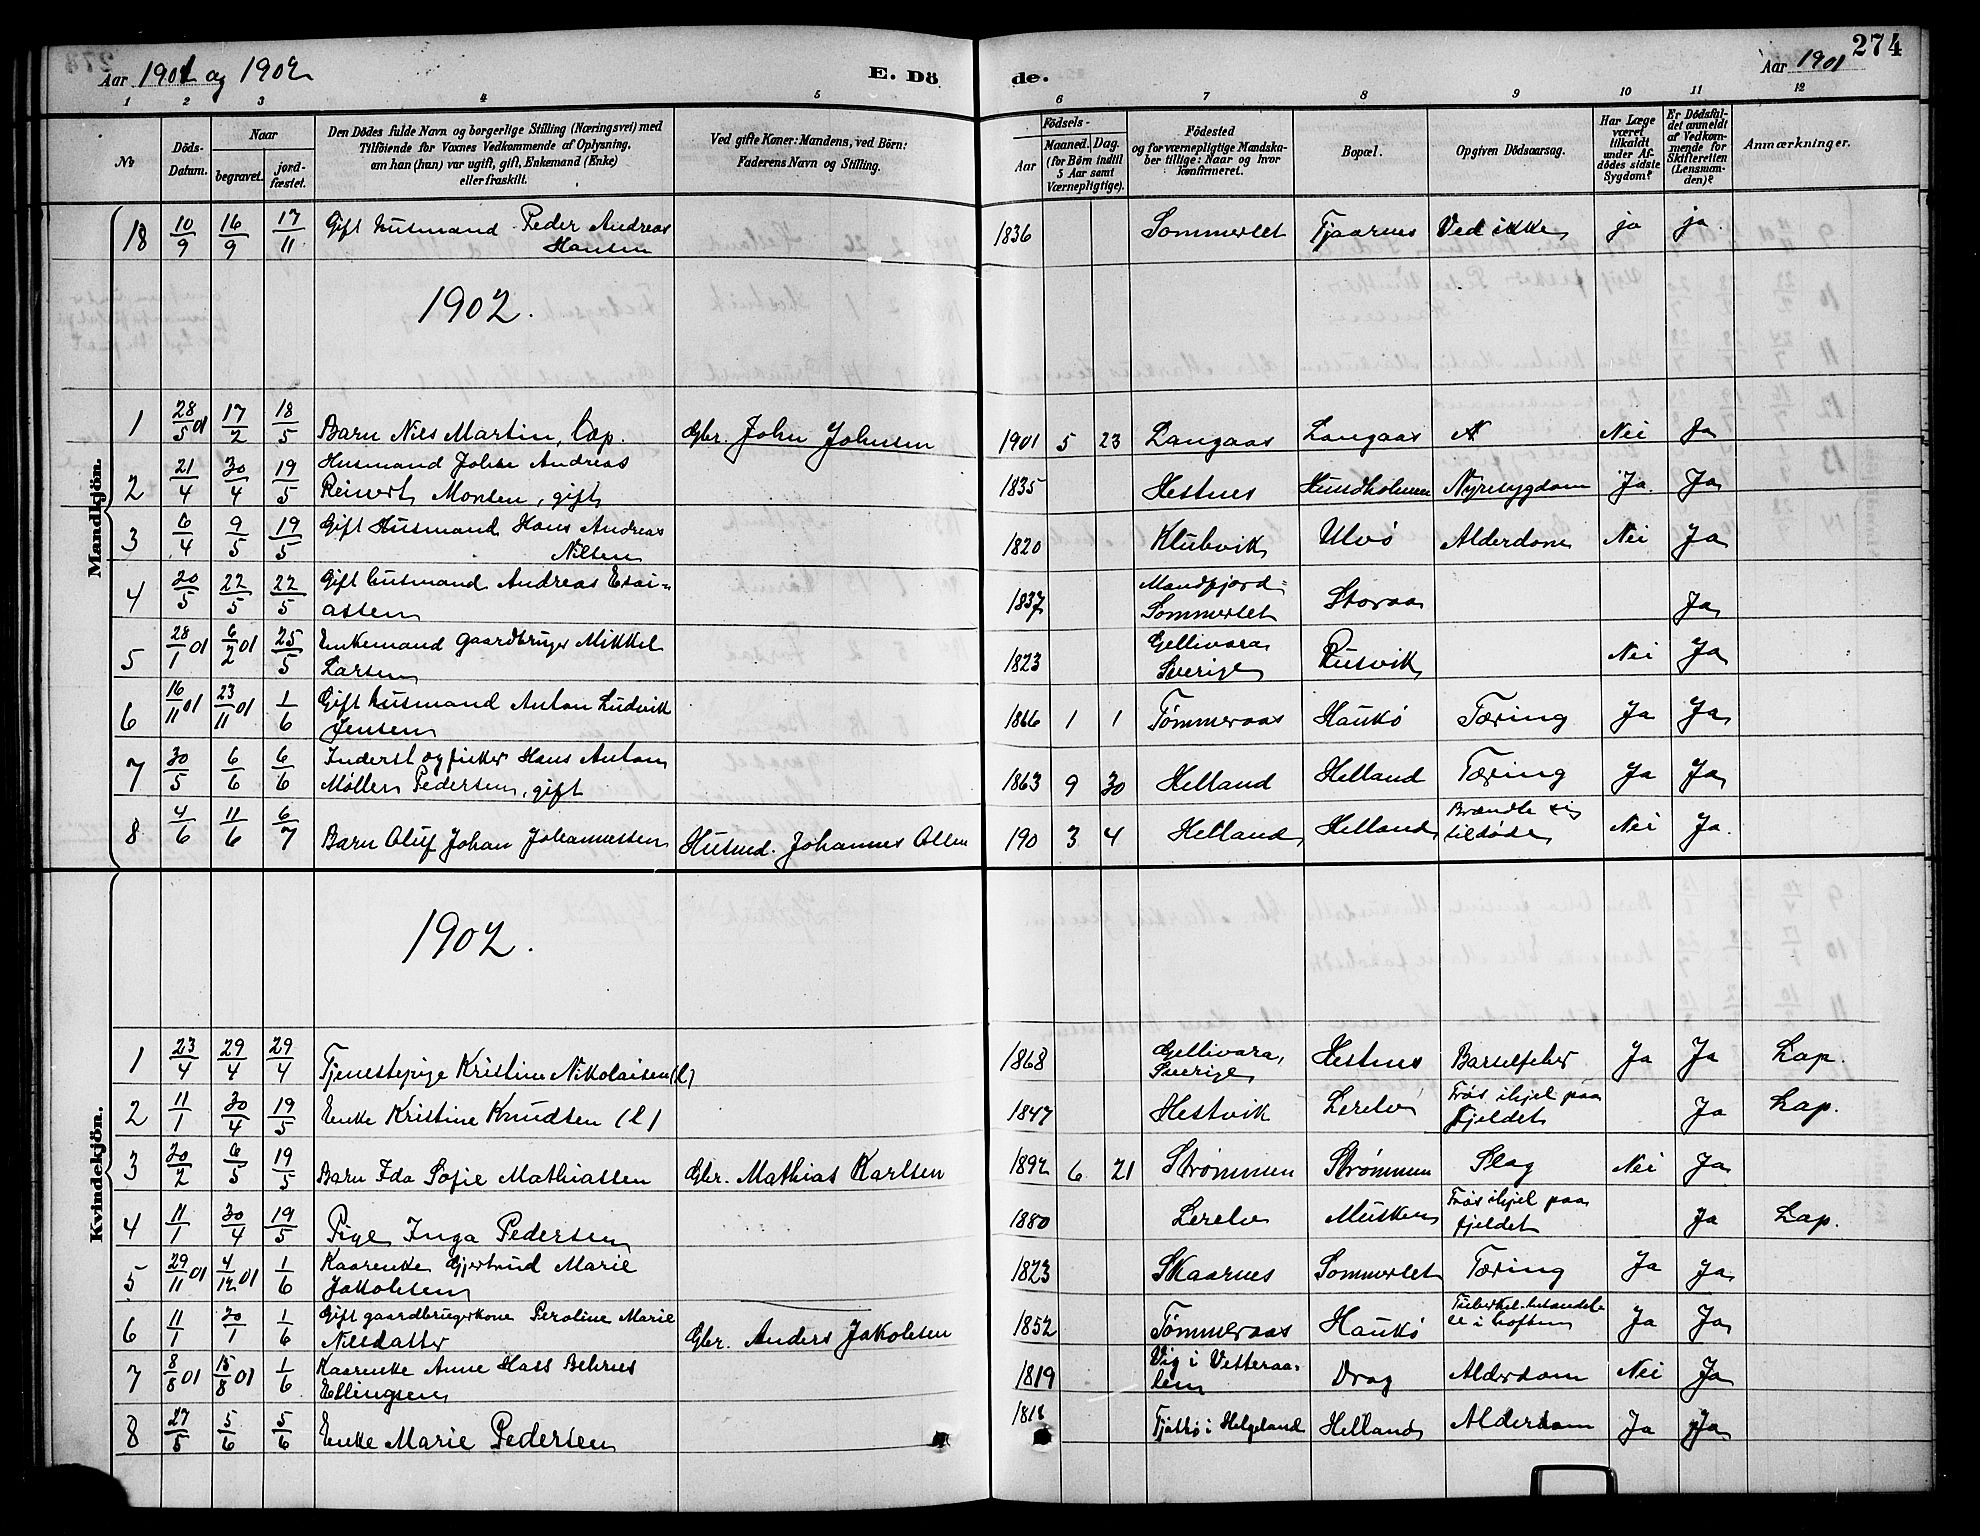 Aar 1901 og 1902
E. Dö
de.
Aar 1901
274
1 2 3 4 5 6 7 8 9 10 11 12
No
Döds-Datum.
Naar
begravet.
jord-fæstet.
Den Dödes fulde Navn og borgerlige Stilling (Næringsvei) med
Tilföiende för Voxnes Vedkommende af Oplysning,
om han (hun) var ugift, gift, Enkemand (Enke)
eller fraskilt.
Ved gifte Koner: Mandens, ved Börn:
Faderens Navn og Stilling.
Födsels-
Aar
Maaned. Dag.
(for Börn indtil
5 Aar samt
Værnepligtige).
Födested
og for værnepligtige Mandska-
ber tillige: Naar og hvor
konfirmeret.
Bopæl.
Opgiven Dödsaarsag.
Har Læge
været
tilkaldt
under Af-
dödes sidste
Sygdom?
Er Dödsfal-
det anmeldt
af Vedkom-
mende for
Skifteretten
(Lensman-
den)?
Anmærkninger.
Mandkjön.
18 10/9 16/9 17/11 Gift husmand Peder Andreas
Hansen 1836 Sommerset Tjaarnes Ved ikke ja ja
1902.
1 28/5 01 17/2 18/5 Barn Nils Martin, Lap. Gbr. John Johnsen 1901 5 23 Langaas Langaas Nei Ja
2 21/4 30/4 19/5 Husmand Johan Andreas
Reinert Monsen, gift 1835 Hestnes Hundholmen Nyresygdom Ja Ja
3 6/4 9/5 19/5 Gift Husmand Hans Andreas
Nilsen 1820 Klubvik Ulvö Alderdom Nei Ja
4 20/5 22/5 22/5 Gift husmand Andreas Esai-
assen 1837 Mandfjord
Sommerset Storaa Ja
5 28/1 01 6/2 01 25/5 Enkemand gaardbruger Mikkel
Larsen 1823 Gellivara
Sverige Rusvik Nei Ja
6 16/11 01 23/11 01 1/6 Gift husmand Anton Ludvik
Jensen 1866 1 1 Tømmeraas Haukö Tæring Ja Ja
7 30/5 6/6 6/6 Inderst og fisker Hans Anton
Möller Pedersen, gift 1863 9 30 Helland Helland Tæring Ja Ja
8 4/6 11/6 6/7 Barn Oluf Johan Johannessen Husmd. Johannes Olsen 190 3 4 Helland Helland Brændte sig
tildöde Nei Ja
Kvindekjön.
1902.
1 23/4 29/4 29/4 Tjenestepige Kristine Nikolaisen (l) 1868 Gellivara,
Sverige Hestnes Barselfeber Ja Ja Lap.
2 11/1 30/4 19/5 Enke Kristine Knudsen (l) 1847 Hestvik Frøs ihjel paa
fjeldet Ja Lap.
3 20/2 6/5 19/5 Barn Ida Sofie Mathiassen Gbr. Mathias Karlsen 1892 6 21 Strømmen Strømmen Slag Nei Ja
4 11/1 30/4 19/5 Pige Inga Pedersen 1880 Musken Frøs ihjel paa
fjeldet Ja Lap.
5 29/11 01 4/12 01 1/6 Kaarenke Gjertrud Marie
Jakobsen 1823 Skaarnes Sommerset Tæring Ja Ja
6 11/1 20/1 1/6 Gift gaardbrugerkone Peroline Marie
Nilsdatter Gbr. Anders Jakobsen 1852 Tømmeraas Haukö i hoften Ja Ja
7 8/8 01 15/8 01 1/6 Kaarenke Anne Hass Behrnes
Ellingsen 1819 Vig i Vesteraa-
len Drag Alderdom Nei Ja
8 27/5 5/6 5/6 Enke Marie Pedersen 1818 Tjøttø i Helgeland Helland Alderdom Ja Ja